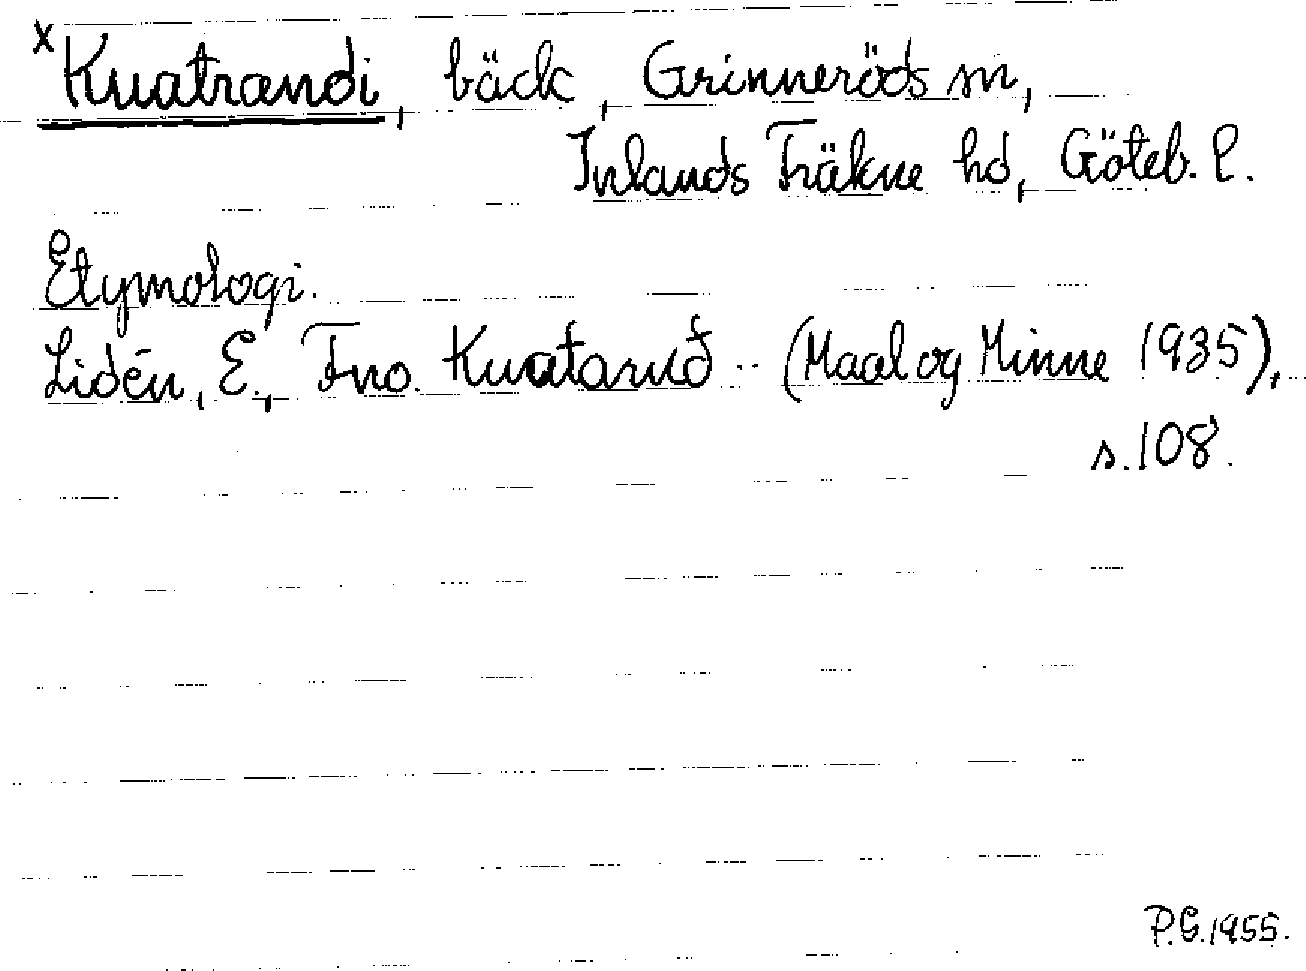 x Kuatrandi, bäck, Grinneröds sn,
Inlands Fräkne hd, Göteb. l.
Etymologi.
Lidén, E., Fno. Kuatarud .. (Maal og Minne 1935),
s. 108.
P.G. 1955.